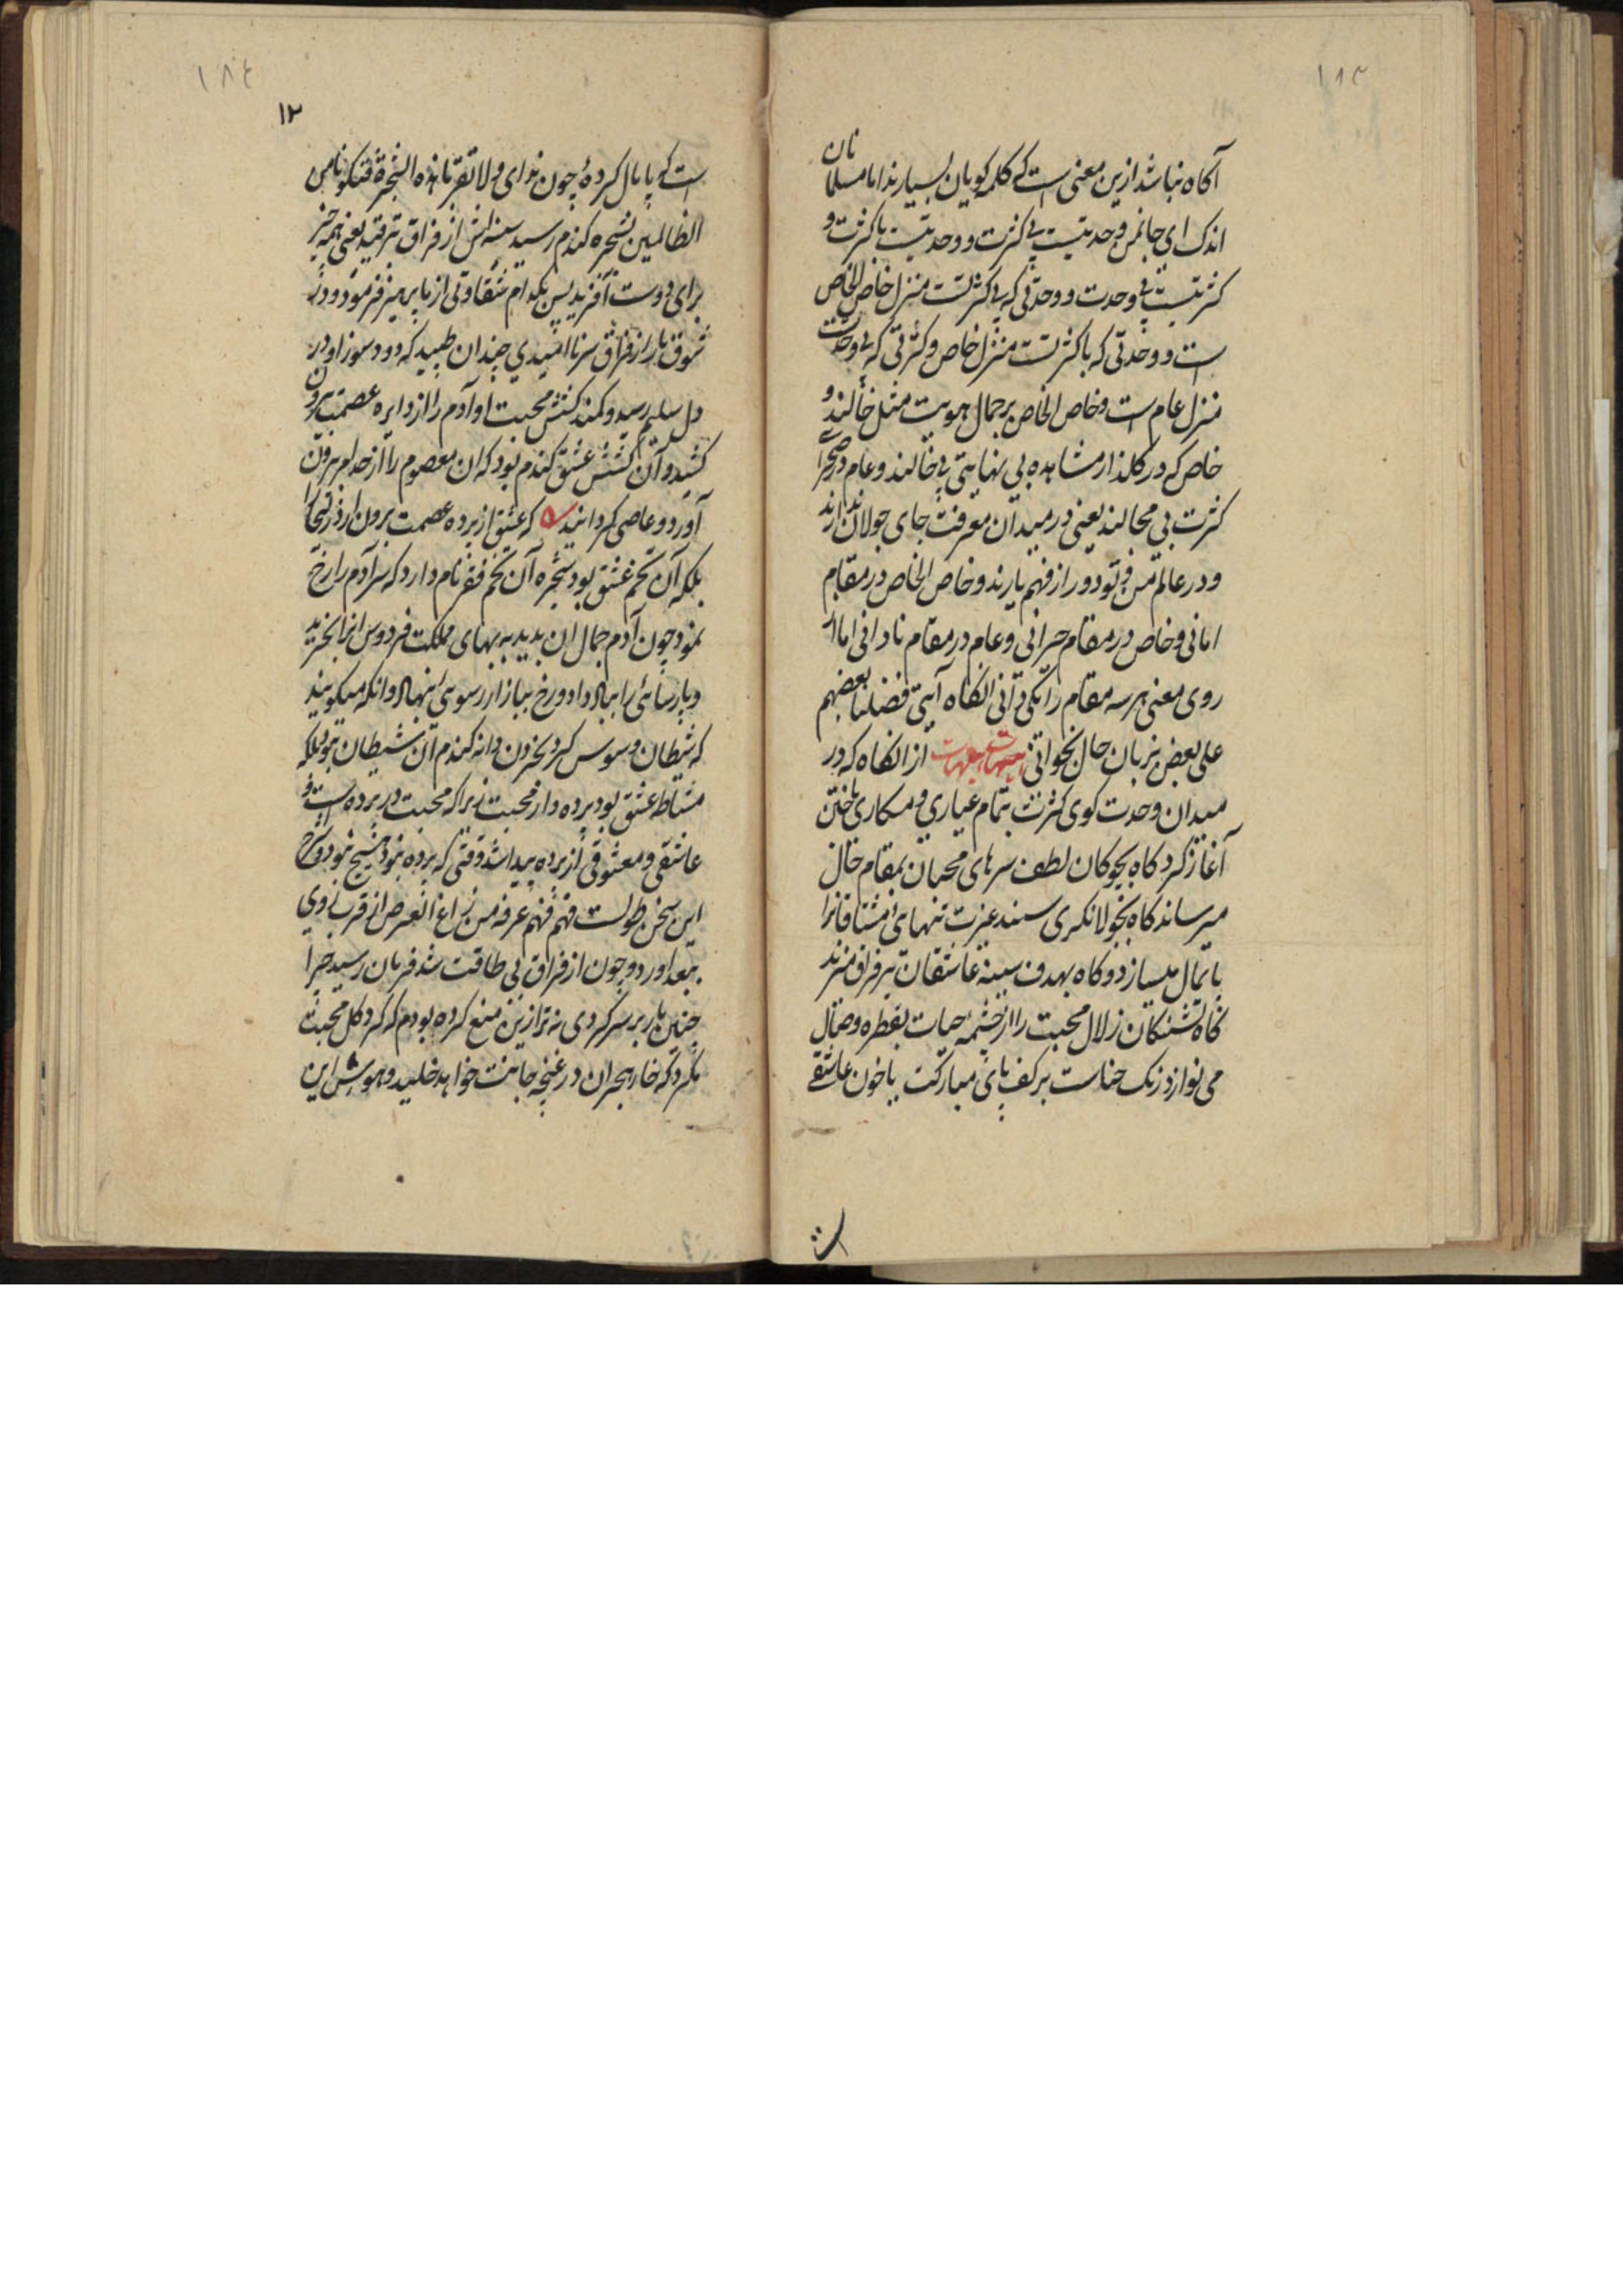 ۱۸۳
آکاه نباشد ازین معنی است که کلمه کویان بسیارند اما مسلمانان
اندک ای جانمن وحدتیست بی کثرت و وحدتیست باکثرت و
کثرتیست بی وحدت و وحدتی که بی کثرتست منزل خاص الخاص
است و وحدتی که باکثرتست منزل خاص و کثرتی که بی وحدت
منزل عام است و خاص الخاص بر جمال هویت مثل خالند و
خاص که در کلذار مشاهده بی نهایتی بی خالند و عام در صحرا
کثرت بی مجالند یعنی در میدان معرفت جای جولان ندارند
و در عالم من و تو دور از فهم یارند و خاص الخاص در مقام
امانی و خاص در مقام حیرانی و عام در مقام نادانی اما از
روی معنی هر سه مقام را یکی دانی انکاه آیتی فضلنا بعضهم
علی بعض بزبان حال بخوانی از انکاه که در
میدان وحدت کوی کثرت بتمام عیاری و مکاری باختن
آغاز کرد کاه بچوکان لطف سرهای محبان بمقام حال
میرساند کاه بجولانکری سمند عزت تنهای مشتاقانرا
پایمال میسازد و کاه بهدف سینه عاشقان تیر فراق میزند
کاه تشنکان زلال محبت را از چشمه حیات بقطره وصال
می نوازد رنک حناست بر کف پای مبارکت یا خون عاشقے
۱۸٤
۱۲
است که پایمال کردهٔ چون ندای ولا تقربا هذه الشجرة فتکونا من
الظالمین بشجره کندم رسید سینه اش از فراق بترقید یعنی همه چیز
برای دوست آفریدی پس بکدام شقاوتی از ما پرهیز فرمود و در
شوق یار از فراق سر ناامیدی چندان طپید که دود سوز او در
دل سلیم رسید و کمند کشش محبت او آدم را از دایره عصمت بیرون
کشید و آن کشش عشق کندم بود که ان معصوم را از حد امر بیرون
آورد و عاصی کردانید که عشق از پرده عصمت برون ارد زلیخا را
بلکه آن تخم عشق بود شجره آن تخم فقر نام دارد که سر آدم را رخ
نمود چون آدم جمال ان بدید به بهای مملکت فردوس انرا بخرید
و پارسائی را بباد داد و رخ ببازار رسوئی نهاد و انکه میکویند
که شیطان وسوس کرد بخوردن دانه کندم آن شیطان نبود بلکه
مشاطه عشق بود پرده دار محبت زیرا که محبت در پرده است و
عاشقی و معشوقی از پرده پیدا شد وقتی که پرده نبود هیچ نبود شرح
این سخن طولست فهم فهم عرفه من
ببعد اورد و چون از فراق بی طاقت شد فرمان رسید چرا
چنین بار بر سر کردی نه ترا ازین منع کرده بودم که کرد کل محبت
مکرد که خار هجران در غنچه جانت خواهد خلید و هوش این